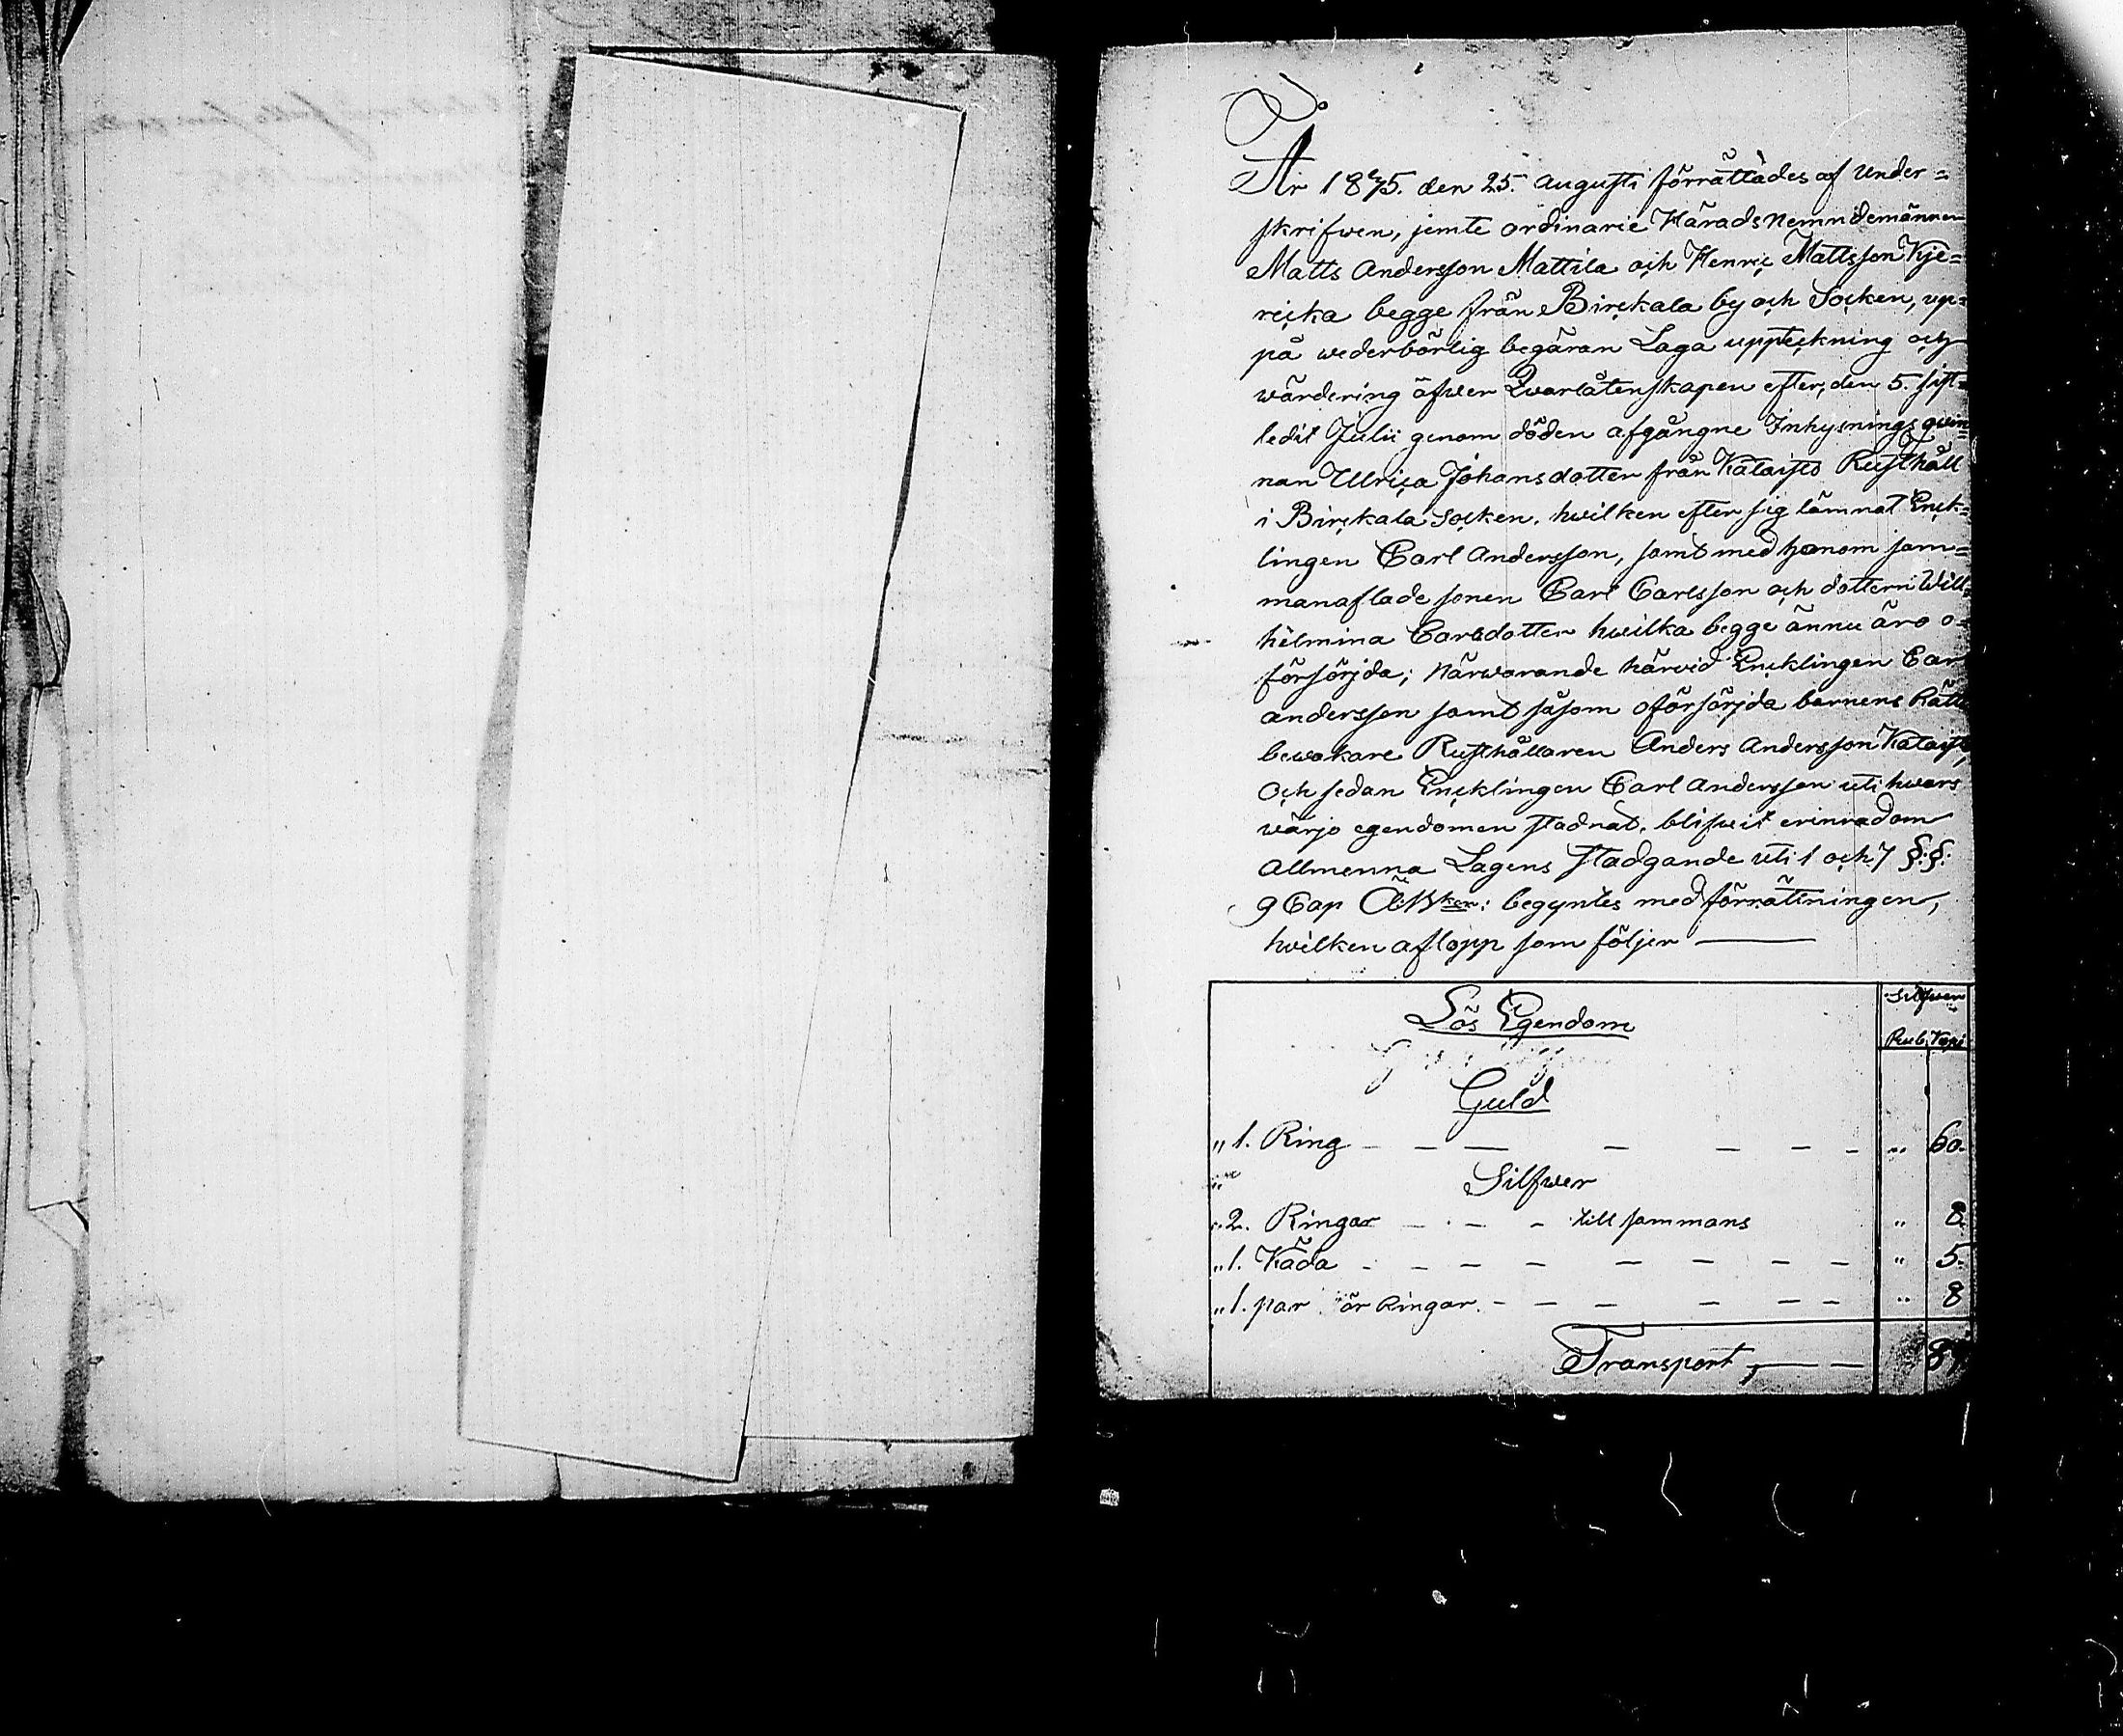 År 1845. den 25. Augusti förrättades af under=
skrifwen, jemte ordinarie Härads Nemndemännen
Matts Andersson Mattila och Henric Mattsson Kje=
recka begge från Birckala by och Socken, up=
på wederbörlig begäran Laga uppteckning och
wärdering öfwer Qvarlåtenskapen efter, den 5. sist=
ledit Julii genom döden afgångne Inhysningsqvin=
nan Ulrica Johansdotter från Kataisto Rusthåll
i Birckala Socken. hwilken efter sig lämnat Enck=
lingen Carl Andersson, samt med honom sam=
manaflade sonen Carl Carlsson och dottern Will=
helmina Carlsdotter hwilka begge ännu äro o=
försörjda; Närwarande härvid Encklingen Carl
Andersson samt såsom oförsörjda barnens Rätts
bewakare Rusthållaren Anders Andersson Kataisto,
Och sedan Encklingen Carl Andersson uti hwars
wärjo egendomen stadnat. blifwit erinrad om
Allmenna Lagens stadgande uti 1 och 7 §.§:
9 Cap Ä:Bken: begyntes med förrättningen,
hwilken aflopp som följer ———
Lös Egendom Silfwer
Rub. Kopi
Guld
„ 1. Ring — — — — — — — „ 60.
Silfwer
„ 2. Ringar — — — till sammans „ 8
„ 1. Käda — — — — — — — — „ 5.
„ 1. par ör Ringar. — — — — — — „ 8
Transport, ——— —